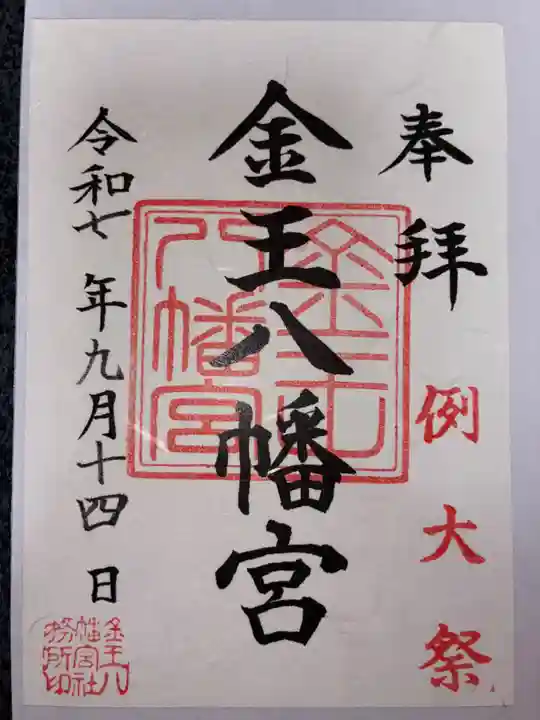 奉拝
例大祭
金王八幡宮
令和七年九月十四日
金王八幡宮
金王八幡宮社務所印